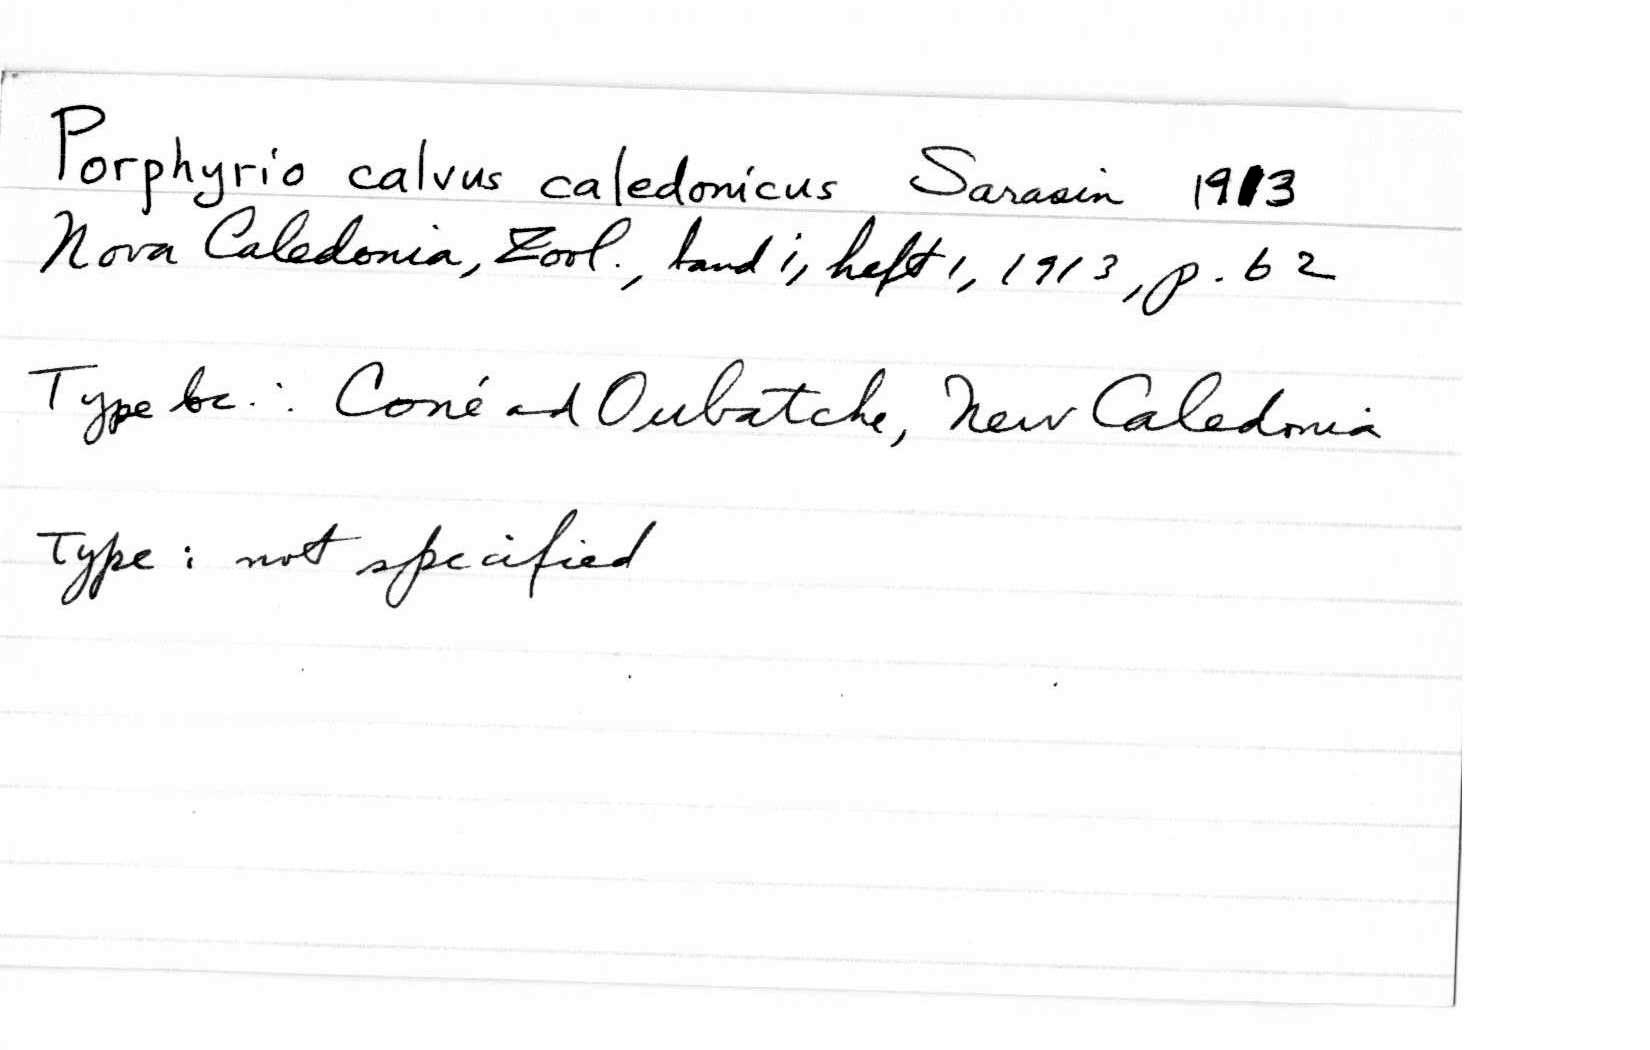 Porphyrio calvus caledonicus Sarasin 1913
Nova Caledonia, Zool., band i, heft 1, 1913, p. 62
Type loc.: Coné and Oubatche, New Caledonia
Type: not specified